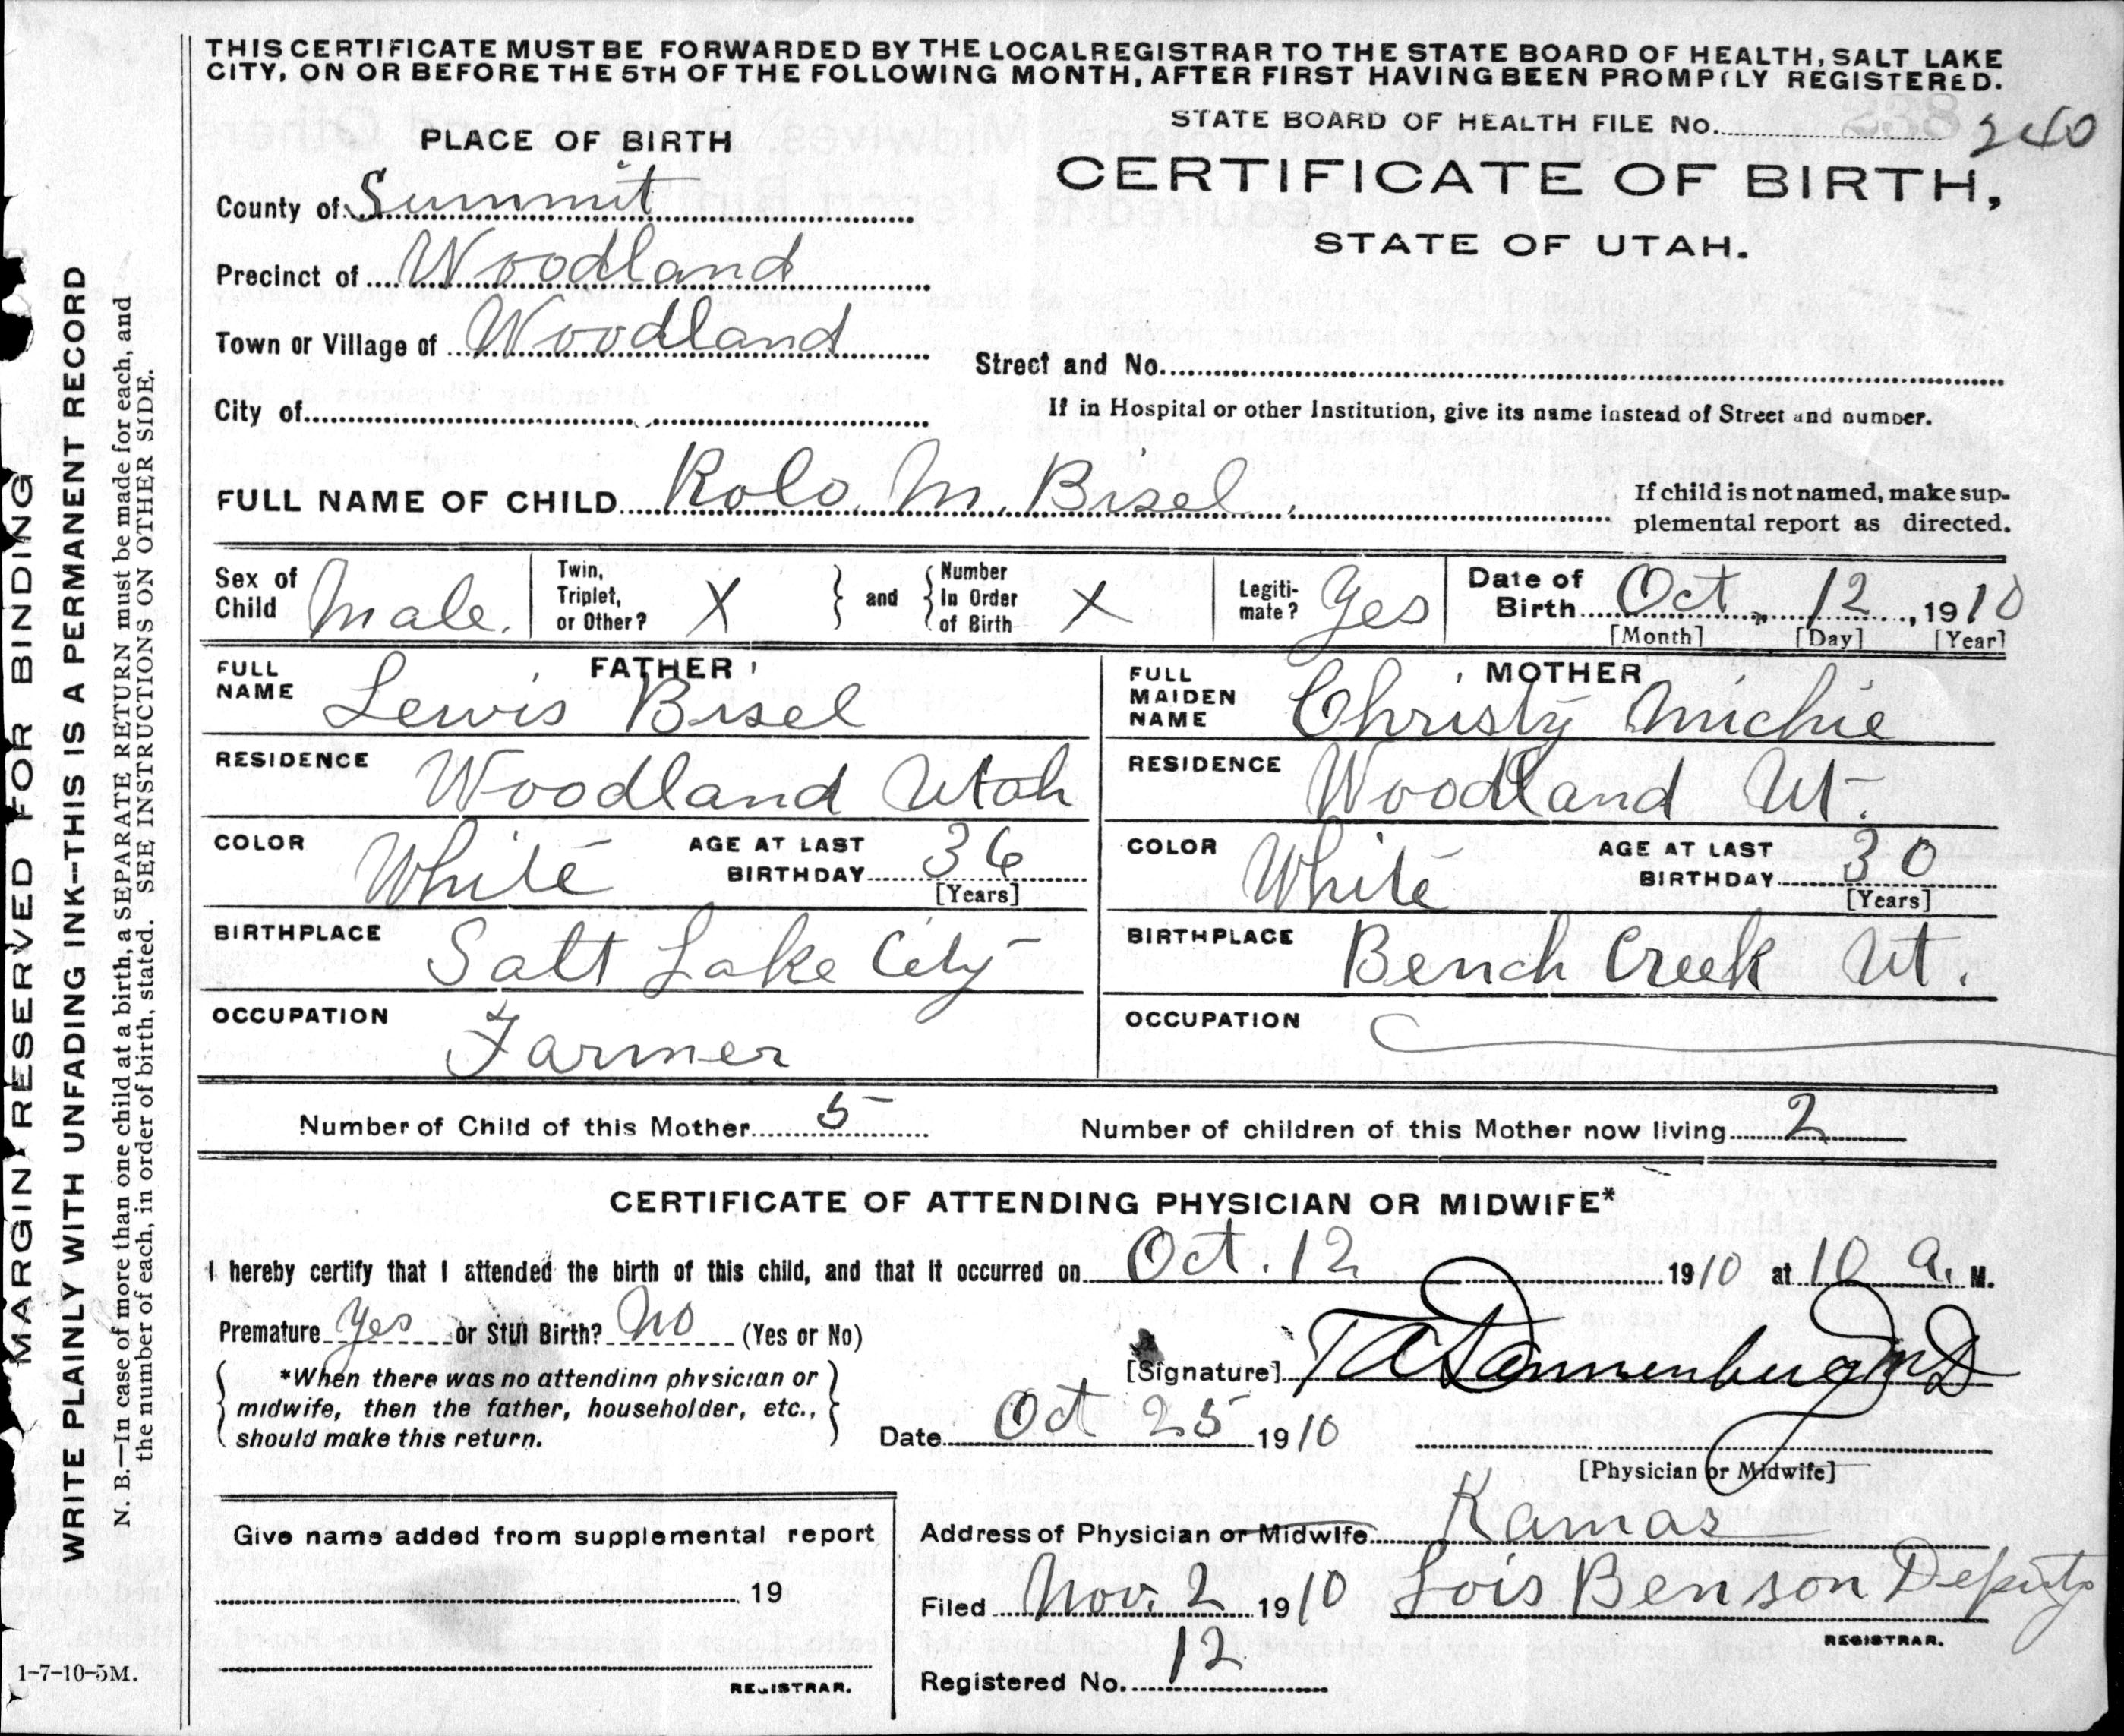 THIS CERTIFICATE MUST BE FORWARDED BY THE LOCAL REGISTRAR TO THE STATE BOARD OF HEALTH, SALT LAKE
CITY, ON OR BEFORE THE 5TH OF THE FOLLOWING MONTH, AFTER FIRST HAVING BEEN PROMPTLY REGISTERED.
STATE BOARD OF HEALTH FILE No. 238 240
PLACE OF BIRTH
CERTIFICATE OF BIRTH,
STATE OF UTAH.
County of Summit
Precinct of Woodland
Town or Village of Woodland
Street and No.
City of
If in Hospital or other Institution, give its name instead of Street and number.
FULL NAME OF CHILD Rolo. M. Bisel.
If child is not named, make sup-
plemental report as directed.
Sex of Child Male.
Twin, Triplet, or Other? X
and
Number In Order of Birth X
Legiti-mate? Yes
Date of Birth Oct., 12, 1910
[Month] [Day] [Year]
FATHER
FULL NAME Lewis Bisel
RESIDENCE Woodland Utah
COLOR White
AGE AT LAST BIRTHDAY 36
[Years]
BIRTHPLACE Salt Lake City
OCCUPATION Farmer
MOTHER
FULL MAIDEN NAME Christy Michie
RESIDENCE Woodland Ut.
COLOR White
AGE AT LAST BIRTHDAY 30
[Years]
BIRTHPLACE Bench Creek Ut.
OCCUPATION
Number of Child of this Mother 5
Number of children of this Mother now living 2
CERTIFICATE OF ATTENDING PHYSICIAN OR MIDWIFE*
I hereby certify that I attended the birth of this child, and that it occurred on Oct. 12 1910 at 10 a. M.
Premature Yes or Still Birth? No (Yes or No)
*When there was no attending physician or
midwife, then the father, householder, etc.,
should make this return.
[Signature] Dannenburg MD
Date Oct 25 1910
[Physician or Midwife]
Give name added from supplemental report
19
REGISTRAR.
Address of Physician or Midwife Kamas
Filed Nov. 2 1910 Lois Benson Deputy
REGISTRAR.
Registered No. 12
1-7-10-5M.
MARGIN RESERVED FOR BINDING
WRITE PLAINLY WITH UNFADING INK--THIS IS A PERMANENT RECORD
N. B.—In case of more than one child at a birth, a SEPARATE RETURN must be made for each, and
the number of each, in order of birth, stated. SEE INSTRUCTIONS ON OTHER SIDE.